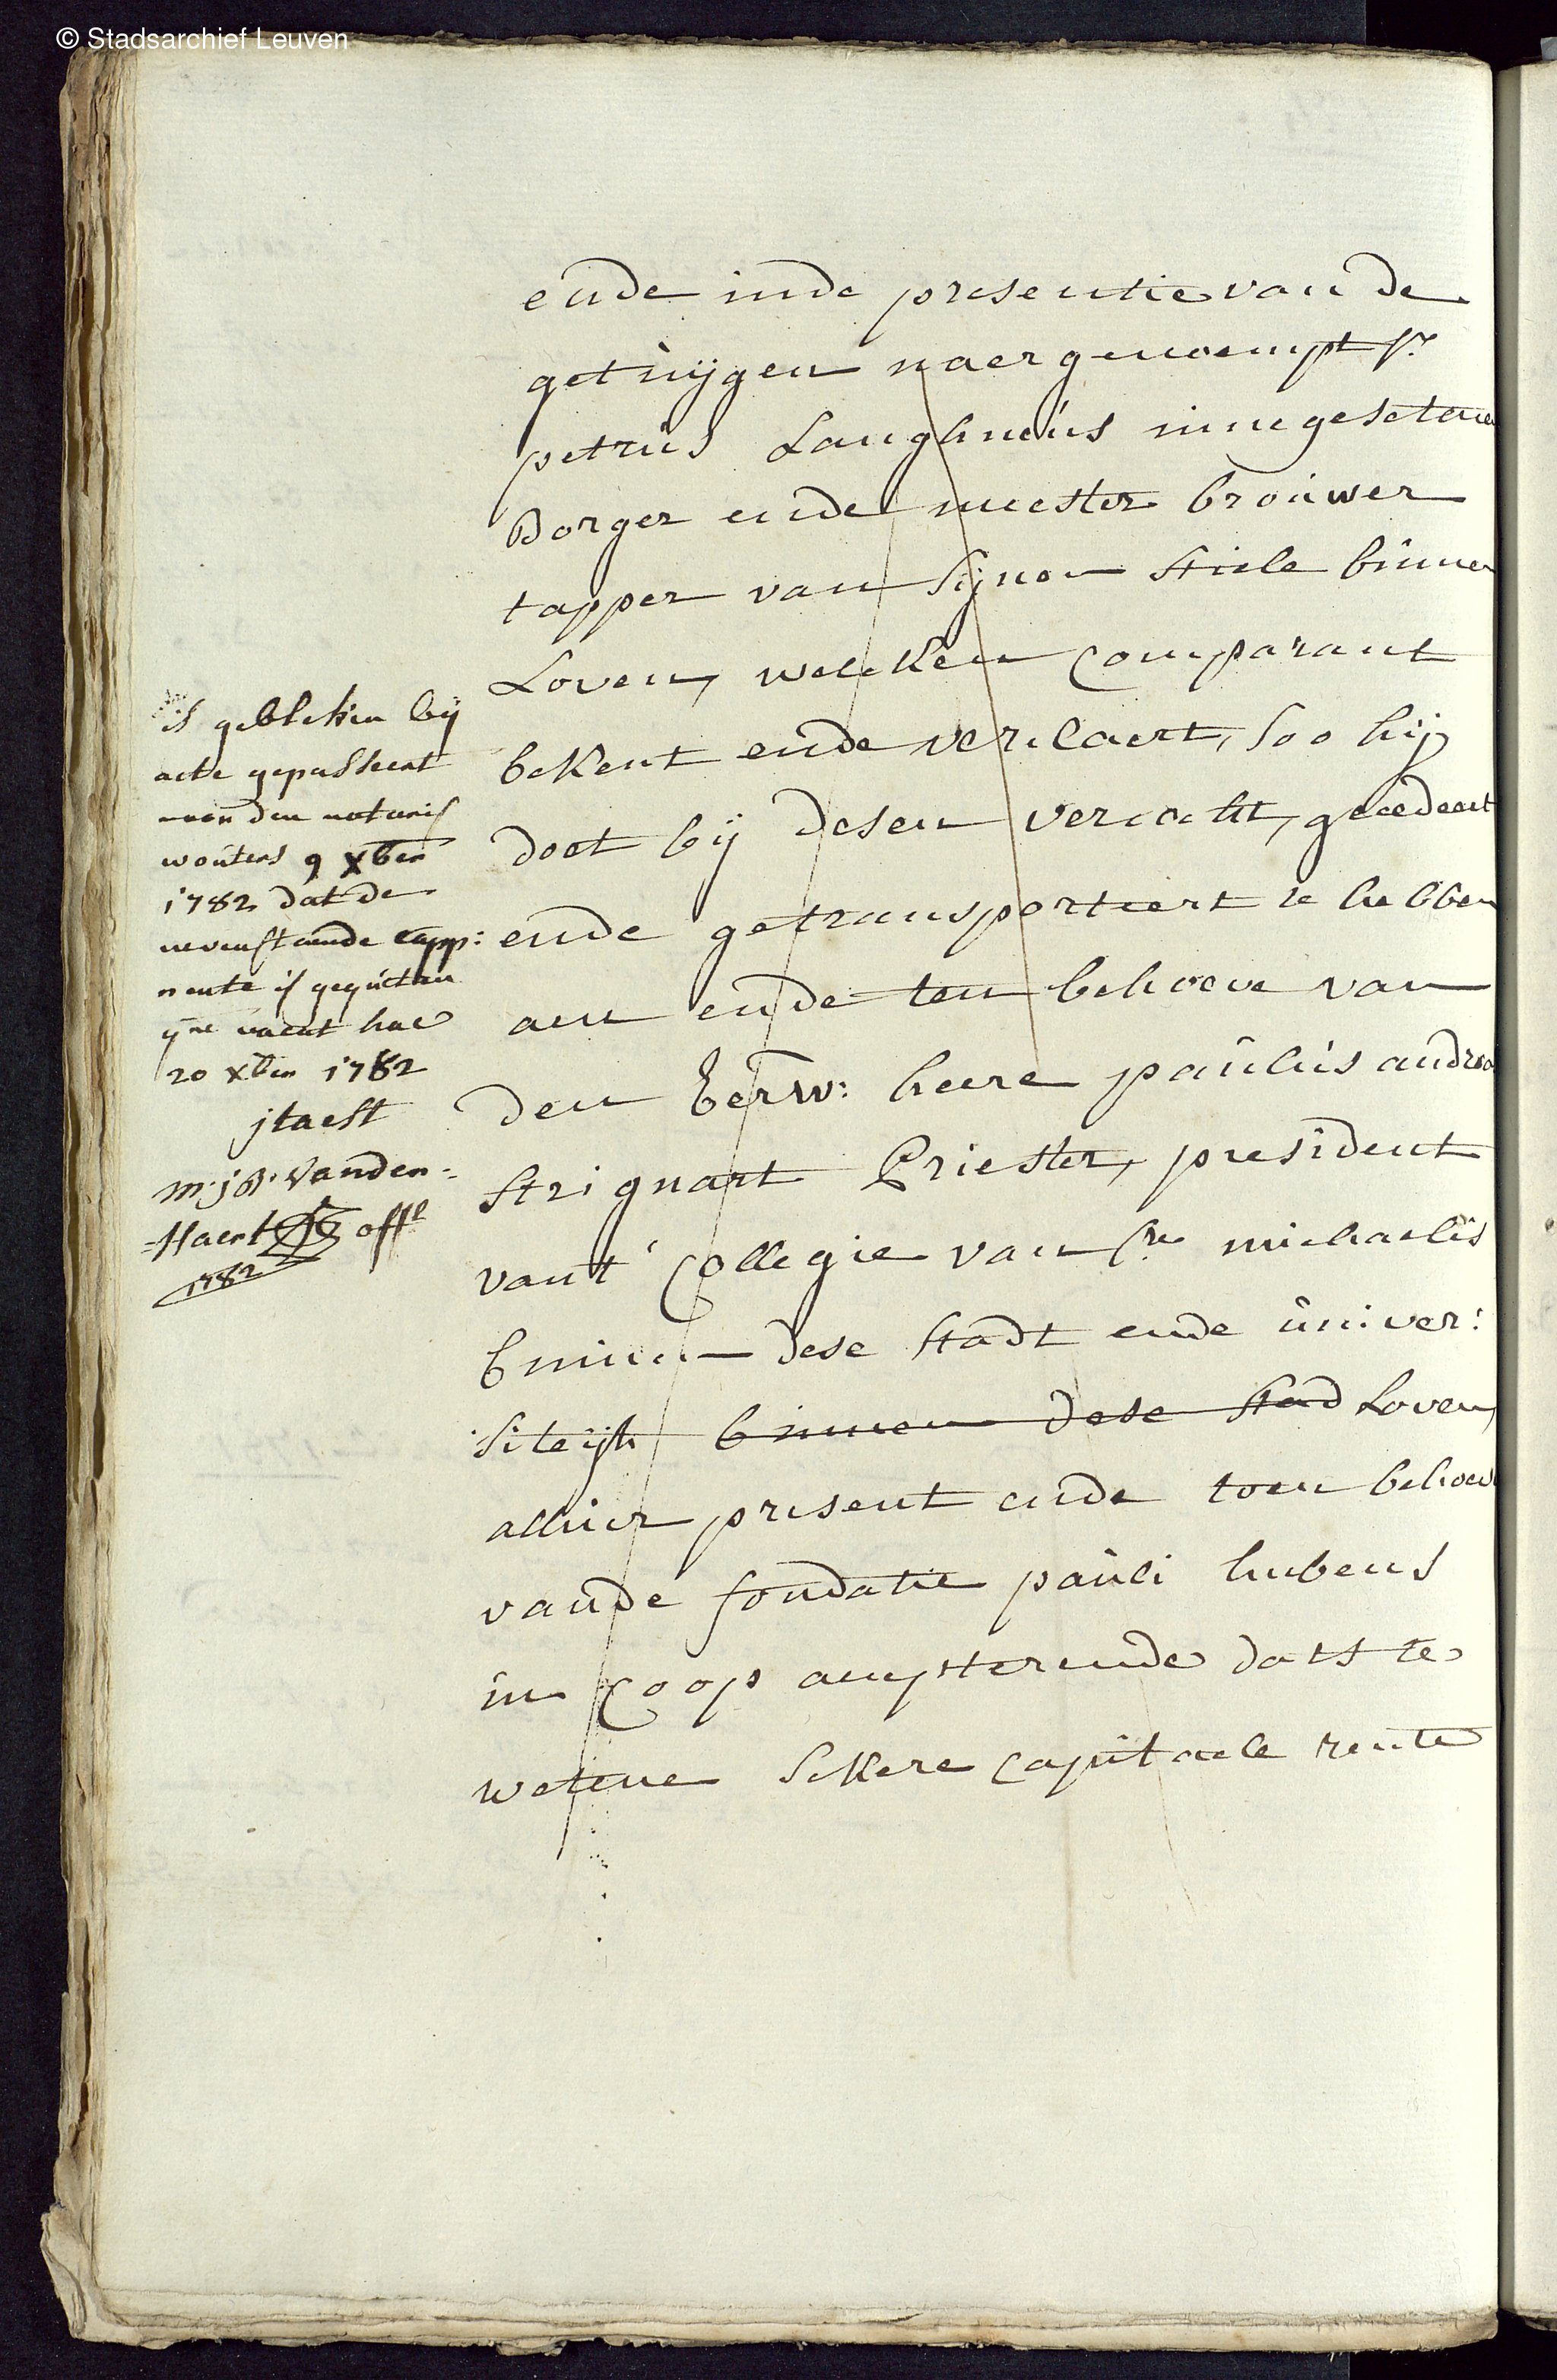 © Stadsarchief Leuven
ende inde presentie van de
getuijgen naergenoempt sr
petrus Langhneus innegesetene
Borger ende meester brouwer
tapper van sijnen stiele binnen
Loven, welcken Comparant
bekent ende verclaert, soo hij
doet bij desen vercocht, gecedeert
ende getransporteert te hebben
aen ende ten behoeve van
den Eerw: heere paulus andreas
strignart Priester, president
vant' Collegie van ste michaelis
binnen dese stadt ende univer:
siteijt binnen dese stad Loven,
alhier present ende toen behoeve
vande fondatie pauli hubens
in Coop accepterende dats te
wetene sekere capitaele rente
is gebleken bij
acte gepasseert
voor den notaris
wouters 9 xber
1782 dat de
nevenstaende capp:
rente is gequeten
vacat hac
20 xber 1782
jtaest
m:j:B: Vanden-
-Haert offl
1782